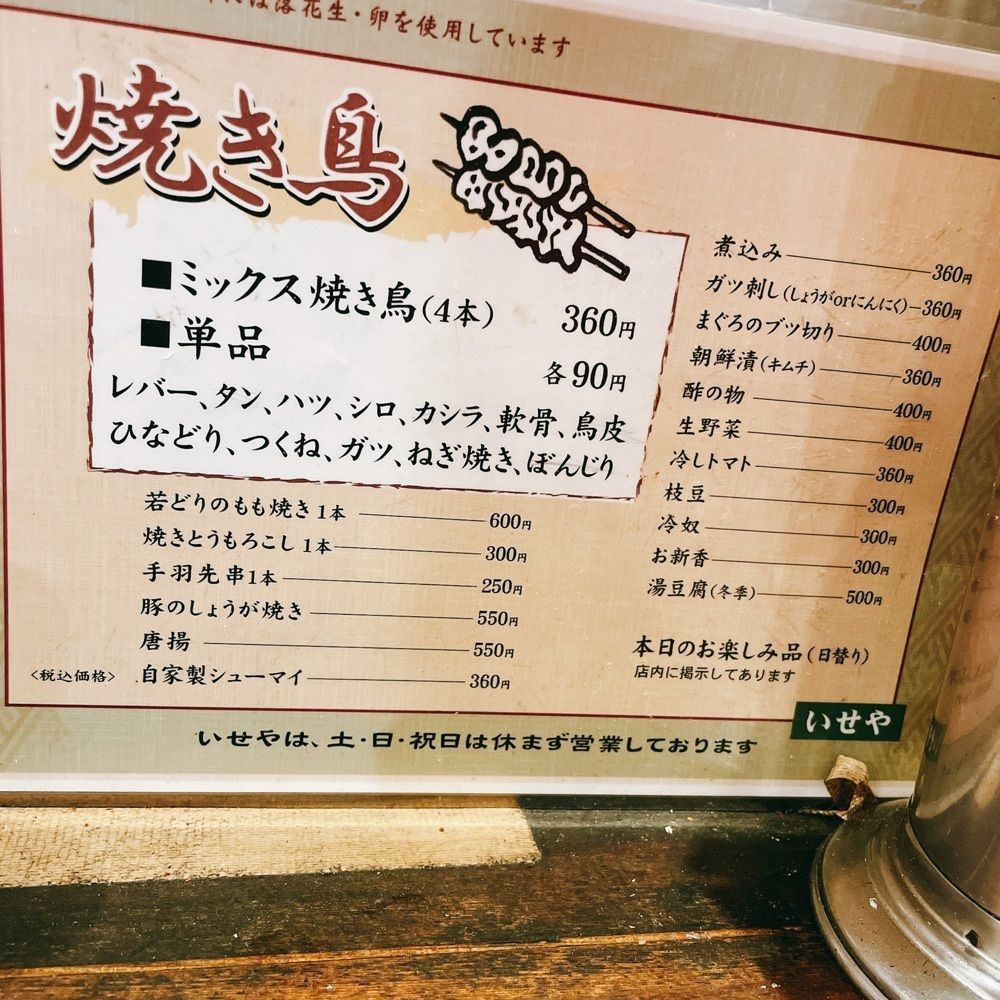 は落花生・卵を使用しています
焼き鳥
■ミックス焼き鳥(4本) 360円
■単品 各90円
レバー、タン、ハツ、シロ、カシラ、軟骨、鳥皮
ひなどり、つくね、ガツ、ねぎ焼き、ぼんじり
若どりのもも焼き1本 600円
焼きとうもろこし1本 300円
手羽先串1本 250円
豚のしょうが焼き 550円
唐揚 550円
<税込価格> 自家製シューマイ 360円
煮込み 360円
ガツ刺し(しょうがorにんにく) 360円
まぐろのブツ切り 400円
朝鮮漬(キムチ) 360円
酢の物 400円
生野菜 400円
冷しトマト 360円
枝豆 300円
冷奴 300円
お新香 300円
湯豆腐(冬季) 500円
本日のお楽しみ品(日替り)
店内に掲示してあります
いせや
いせやは、土・日・祝日は休まず営業しております